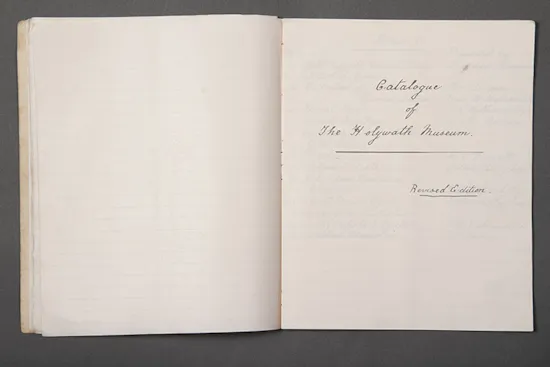 Catalogue
of
The Holywath Museum.
Revised Edition.